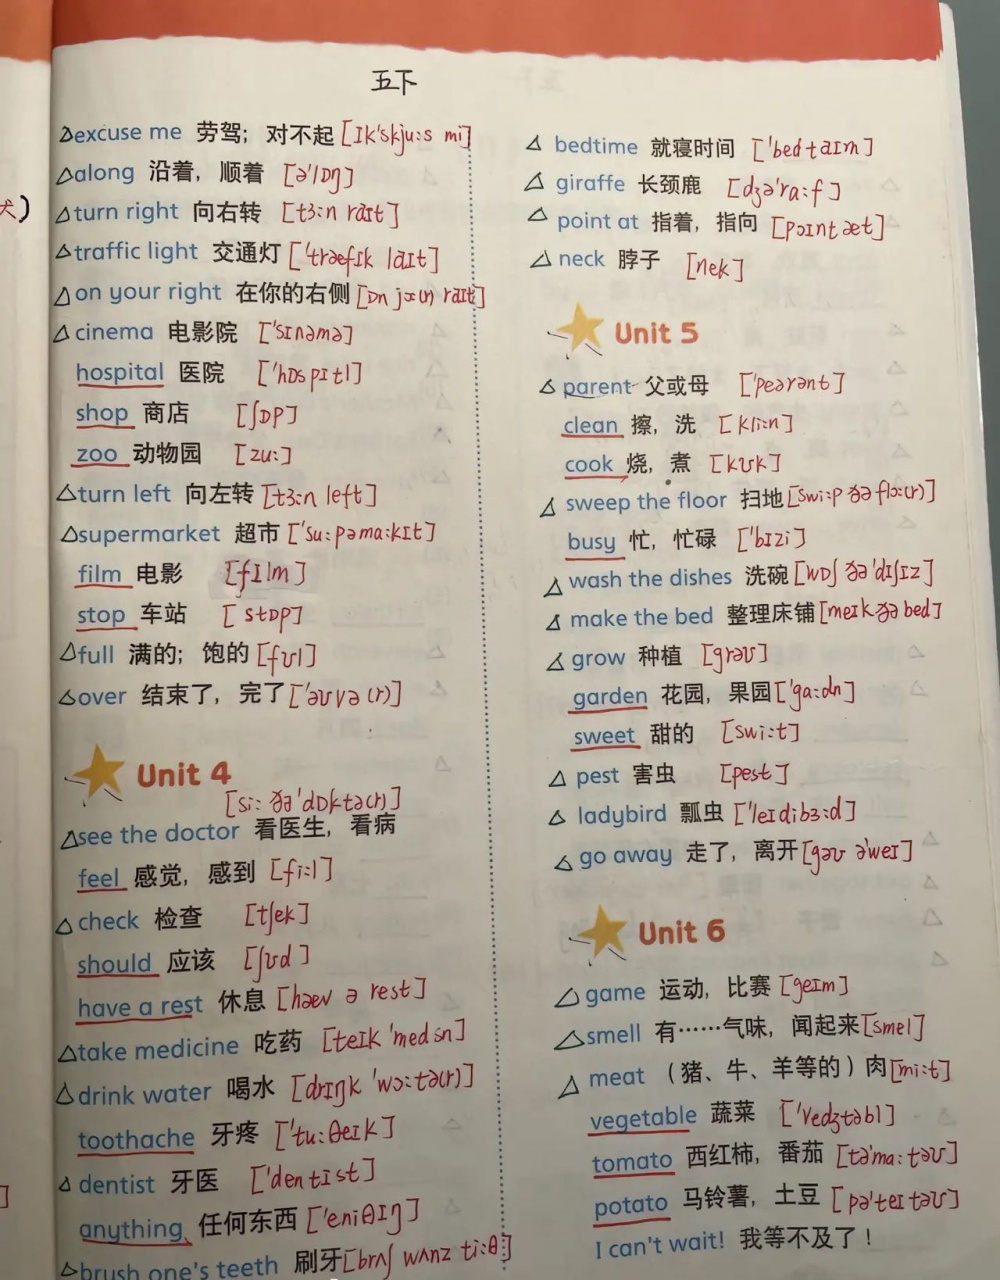 五下
犬）
excuse me 劳驾；对不起 [Ik'skju:s mi]
along 沿着，顺着 [ə'lɒŋ]
turn right 向右转 [tɜ:n raɪt]
traffic light 交通灯 ['træfɪk laɪt]
on your right 在你的右侧 [ɒn jɔ:(r) raɪt]
cinema 电影院 ['sɪnəmə]
hospital 医院 ['hɒspɪtl]
shop 商店 [ʃɒp]
zoo 动物园 [zu:]
turn left 向左转 [tɜ:n left]
supermarket 超市 ['su:pəma:kɪt]
film 电影 [fɪlm]
stop 车站 [stɒp]
full 满的；饱的 [fʊl]
over 结束了，完了 ['əʊvə(r)]
Unit 4
[si: ðə'dɒktə(r)]
see the doctor 看医生，看病
feel 感觉，感到 [fi:l]
check 检查 [tʃek]
should 应该 [ʃʊd]
have a rest 休息 [hæv ə rest]
take medicine 吃药 [teɪk 'medsn]
drink water 喝水 [drɪŋk 'wɔ:tə(r)]
toothache 牙疼 ['tu:θeɪk]
dentist 牙医 ['dentɪst]
anything 任何东西 ['eniθɪŋ]
brush one's teeth 刷牙 [brʌʃ wʌnz ti:θ]
bedtime 就寝时间 ['bedtaɪm]
giraffe 长颈鹿 [dʒə'ra:f]
point at 指着，指向 [pɔɪnt æt]
neck 脖子 [nek]
Unit 5
parent 父或母 ['peərənt]
clean 擦，洗 [kli:n]
cook 烧，煮 [kʊk]
sweep the floor 扫地 [swi:p ðə flɔ:(r)]
busy 忙，忙碌 ['bɪzi]
wash the dishes 洗碗 [wɒʃ ðə 'dɪʃɪz]
make the bed 整理床铺 [meɪk ðə bed]
grow 种植 [grəʊ]
garden 花园，果园 ['ga:dn]
sweet 甜的 [swi:t]
pest 害虫 [pest]
ladybird 瓢虫 ['leɪdibɜ:d]
go away 走了，离开 [gəʊ ə'weɪ]
Unit 6
game 运动，比赛 [geɪm]
smell 有……气味，闻起来 [smel]
meat （猪、牛、羊等的）肉 [mi:t]
vegetable 蔬菜 ['vedʒtəbl]
tomato 西红柿，番茄 [tə'ma:təʊ]
potato 马铃薯，土豆 [pə'teɪtəʊ]
I can't wait! 我等不及了！